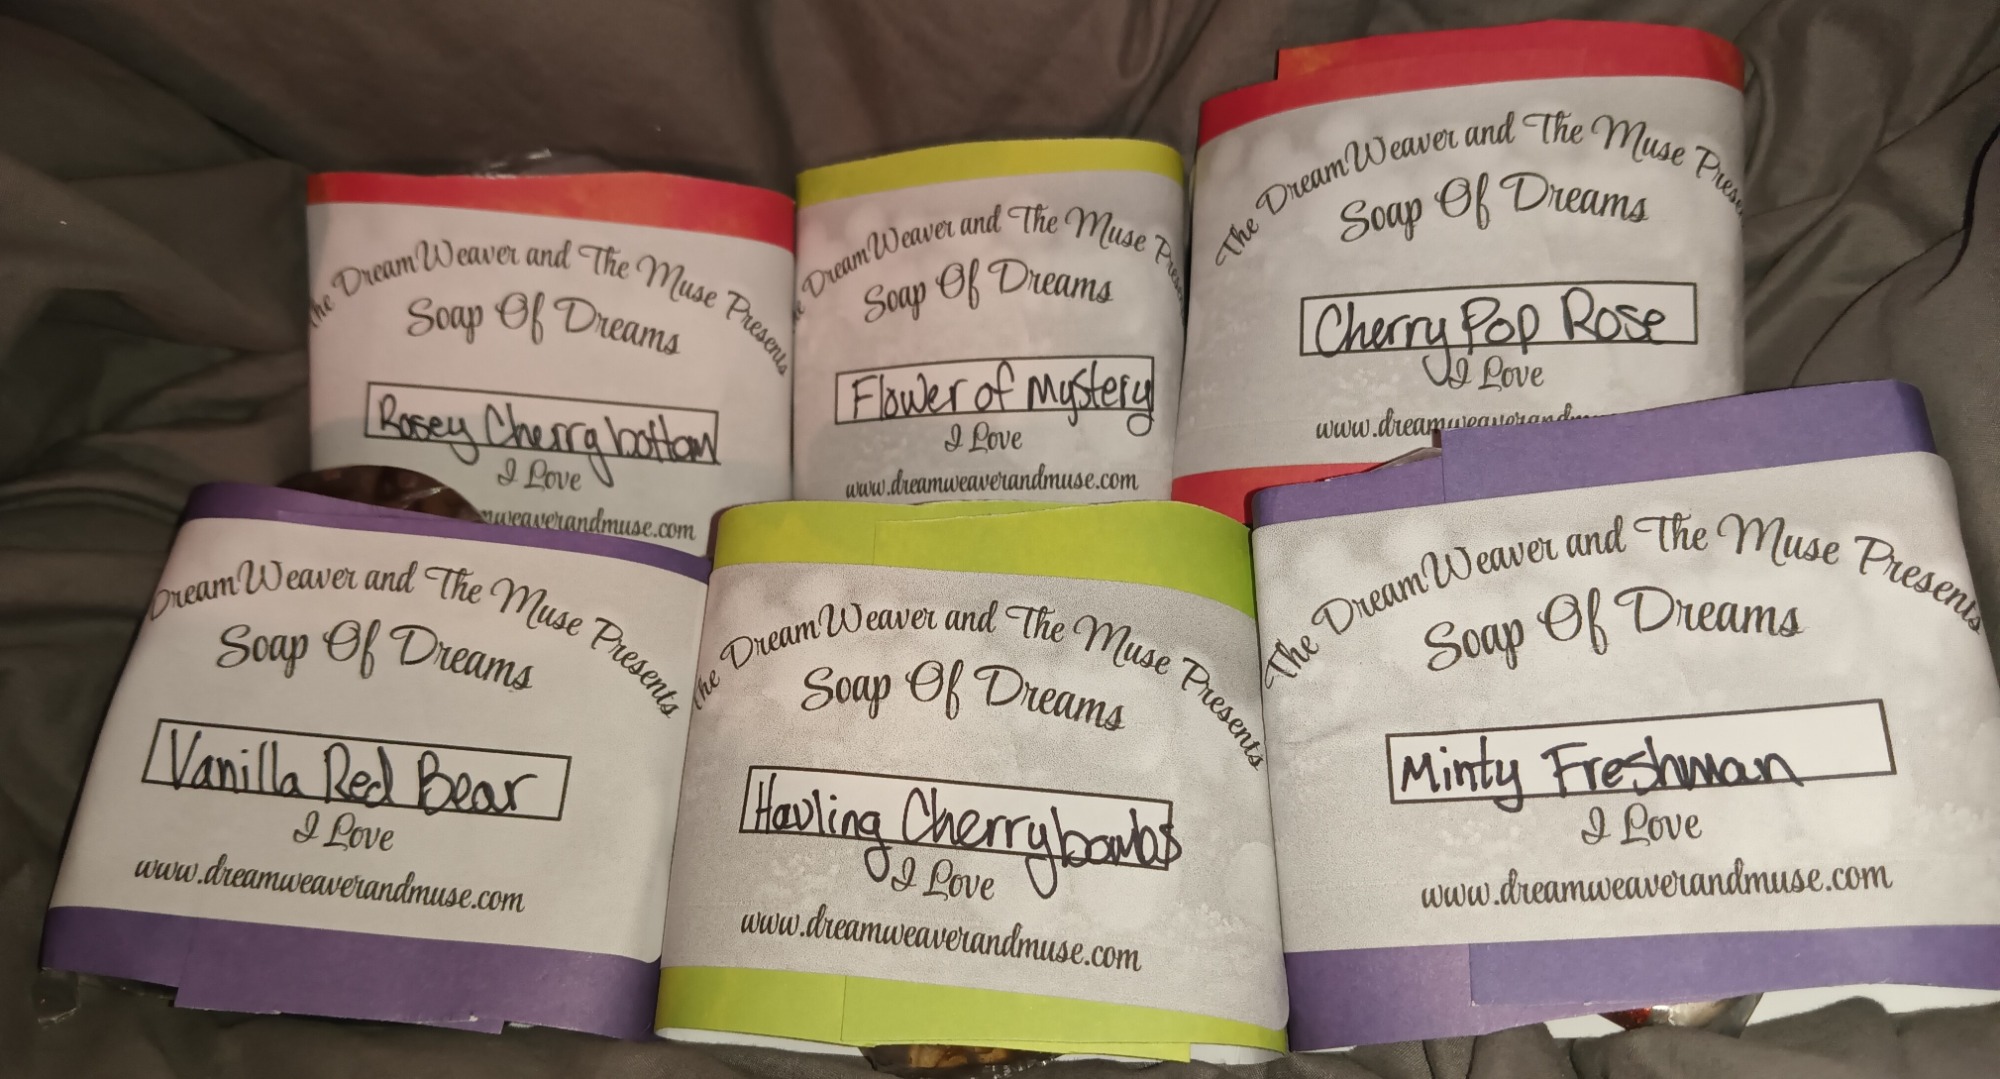 The DreamWeaver and The Muse Presents
Soap Of Dreams
Rosey Cherry bottom
I Love
mweaverandmuse.com
he DreamWeaver and The Muse Prese
Soap Of Dreams
Flower of Mystery
I Love
www.dreamweaverandmuse.com
The DreamWeaver and The Muse Prese
Soap Of Dreams
Cherry Pop Rose
I Love
www.dreamweaverand
DreamWeaver and The Muse Presents
Soap Of Dreams
Vanilla Red Bear
I Love
www.dreamweaverandmuse.com
The DreamWeaver and The Muse Presents
Soap Of Dreams
Hauling Cherrybombs
I Love
www.dreamweaverandmuse.com
The DreamWeaver and The Muse Presents
Soap Of Dreams
Minty Freshman
I Love
www.dreamweaverandmuse.com